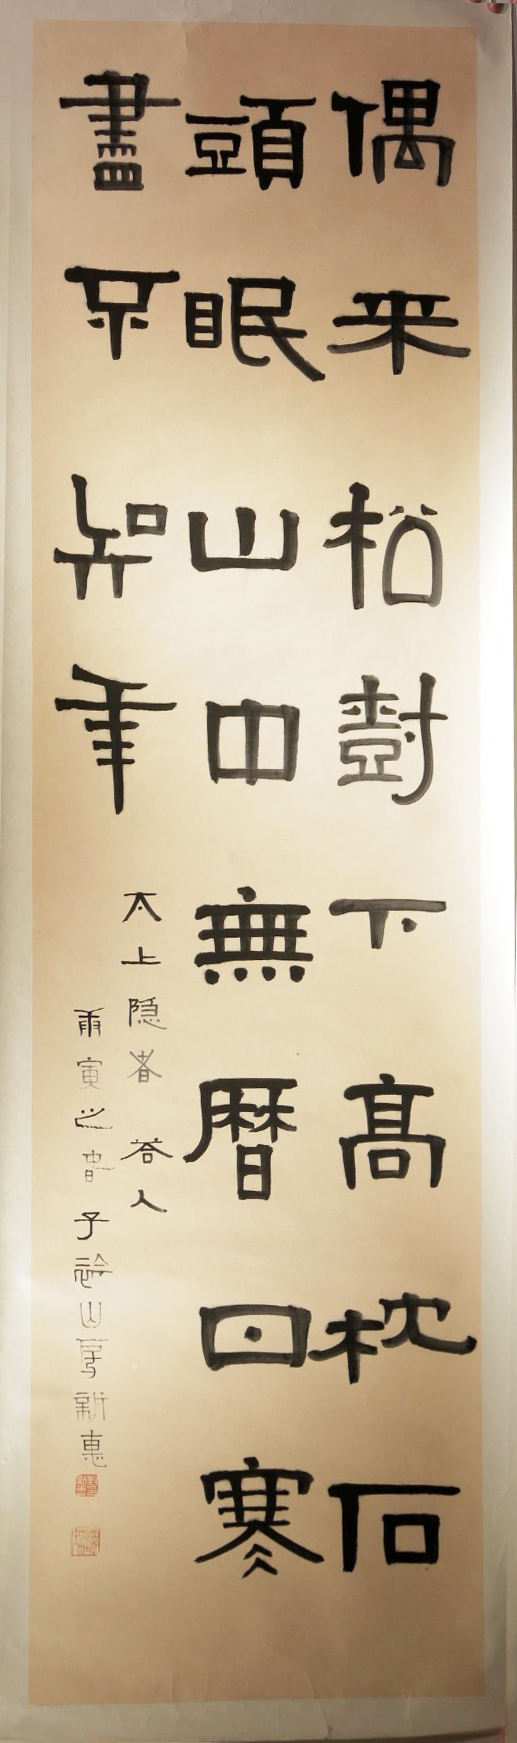 偶來松樹下高枕石
頭眠山中無曆日寒
盡不知年
太上隐者 答人
丙寅之春 子 山 新惠